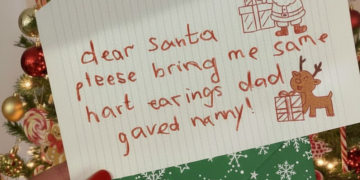 dear santa
pleese bring me same
hart earings dad
gaved nanny!